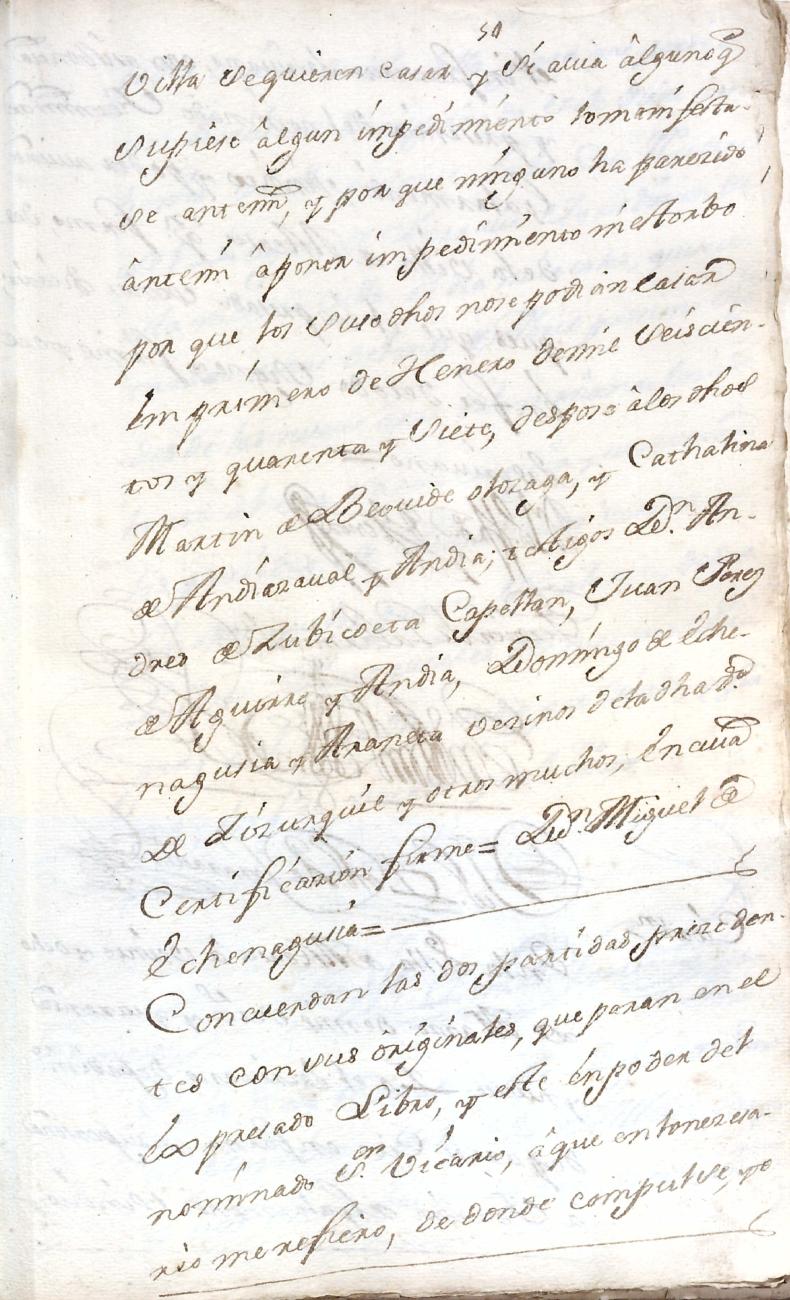 50
Villa se quieren casar y si avia âlguno q̃
supiese âlgun impedimiento lo manifesta-
se antemi, y por que ninguno ha parezido
ântemi âponer impedimento ni estorbo
por que los suso dhos nose podian Casar
En primero de Henero demil Seiscien-
tos y quarenta y Siete, despose âlos dhos
Martin de Beovide olozaga, y Cathalina
de Andiazaval y Andia; testigos Dn. An-
dres de Zubicoeta Capellan, Juan Perez
de Aguirre y Andia, Domingo de Eche-
nagusia y Araneta vezinos dela dha
De Aizurquil y otros muchos, En cuia
Certificazion firme = Dn. Miguel de
Echenagusia =
Concuerdan las dos partidas preceden-
tes con sus originales, que paran en el
Expresado Libro, y este en poder del
nominado Sor. Vicario, â que en lo nezesa-
rio me refiero, de donde compulse, yo